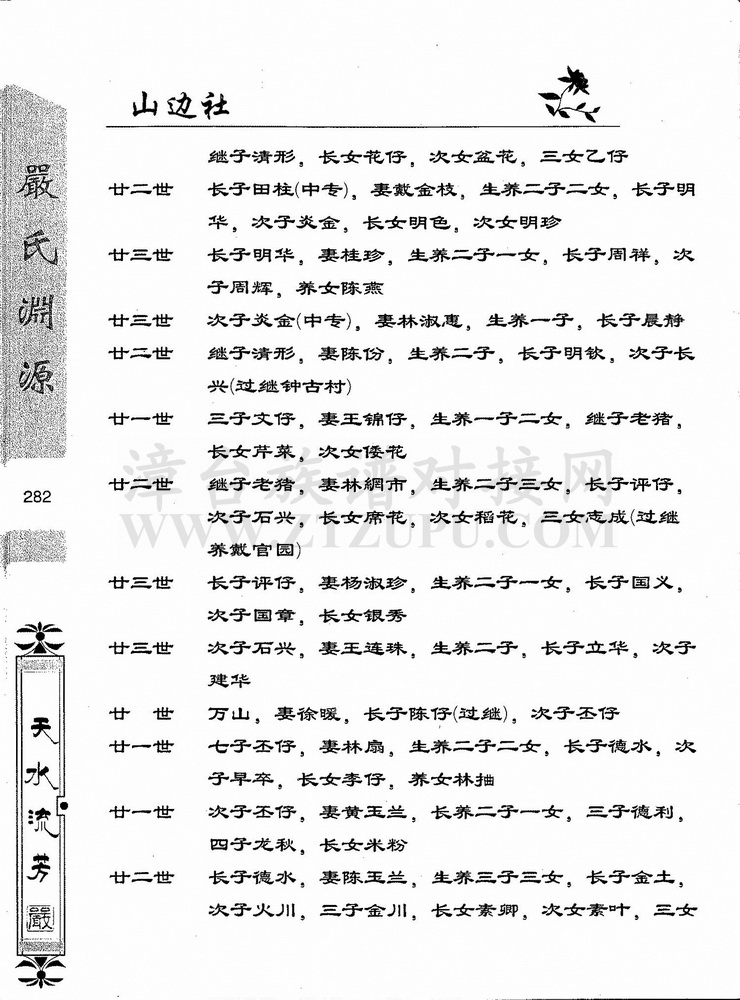 山边社
继子清形，长女花仔，次女盆花，三女乙仔
廿二世 长子田柱(中专)，妻戴金枝，生养二子二女，长子明
华，次子炎金，长女明色，次女明珍
廿三世 长子明华，妻桂珍，生养二子一女，长子周祥，次
子周辉，养女陈燕
廿三世 次子炎金(中专)，妻林淑惠，生养一子，长子晨静
廿二世 继子清形，妻陈份，生养二子，长子明钦，次子长
兴(过继钟古村)
廿一世 三子文仔，妻王锦仔，生养一子二女，继子老猪，
长女芹菜，次女倭花
廿二世 继子老猪，妻林網市，生养二子三女，长子评仔，
次子石兴，长女席花，次女稻花，三女志成(过继
养戴官园)
廿三世 长子评仔，妻杨淑珍，生养二子一女，长子国义，
次子国章，长女银秀
廿三世 次子石兴，妻王连珠，生养二子，长子立华，次子
建华
廿 世 万山，妻徐暖，长子陈仔(过继)，次子丕仔
廿一世 七子丕仔，妻林扇，生养二子二女，长子德水，次
子早卒，长女李仔，养女林抽
廿一世 次子丕仔，妻黄玉兰，长养二子一女，三子德利，
四子龙秋，长女米粉
廿二世 长子德水，妻陈玉兰，生养三子三女，长子金土，
次子火川，三子金川，长女素卿，次女素叶，三女
嚴氏淵源
282
天水流芳
嚴
漳台族谱对接网
WWW.ZTZUPU.COM